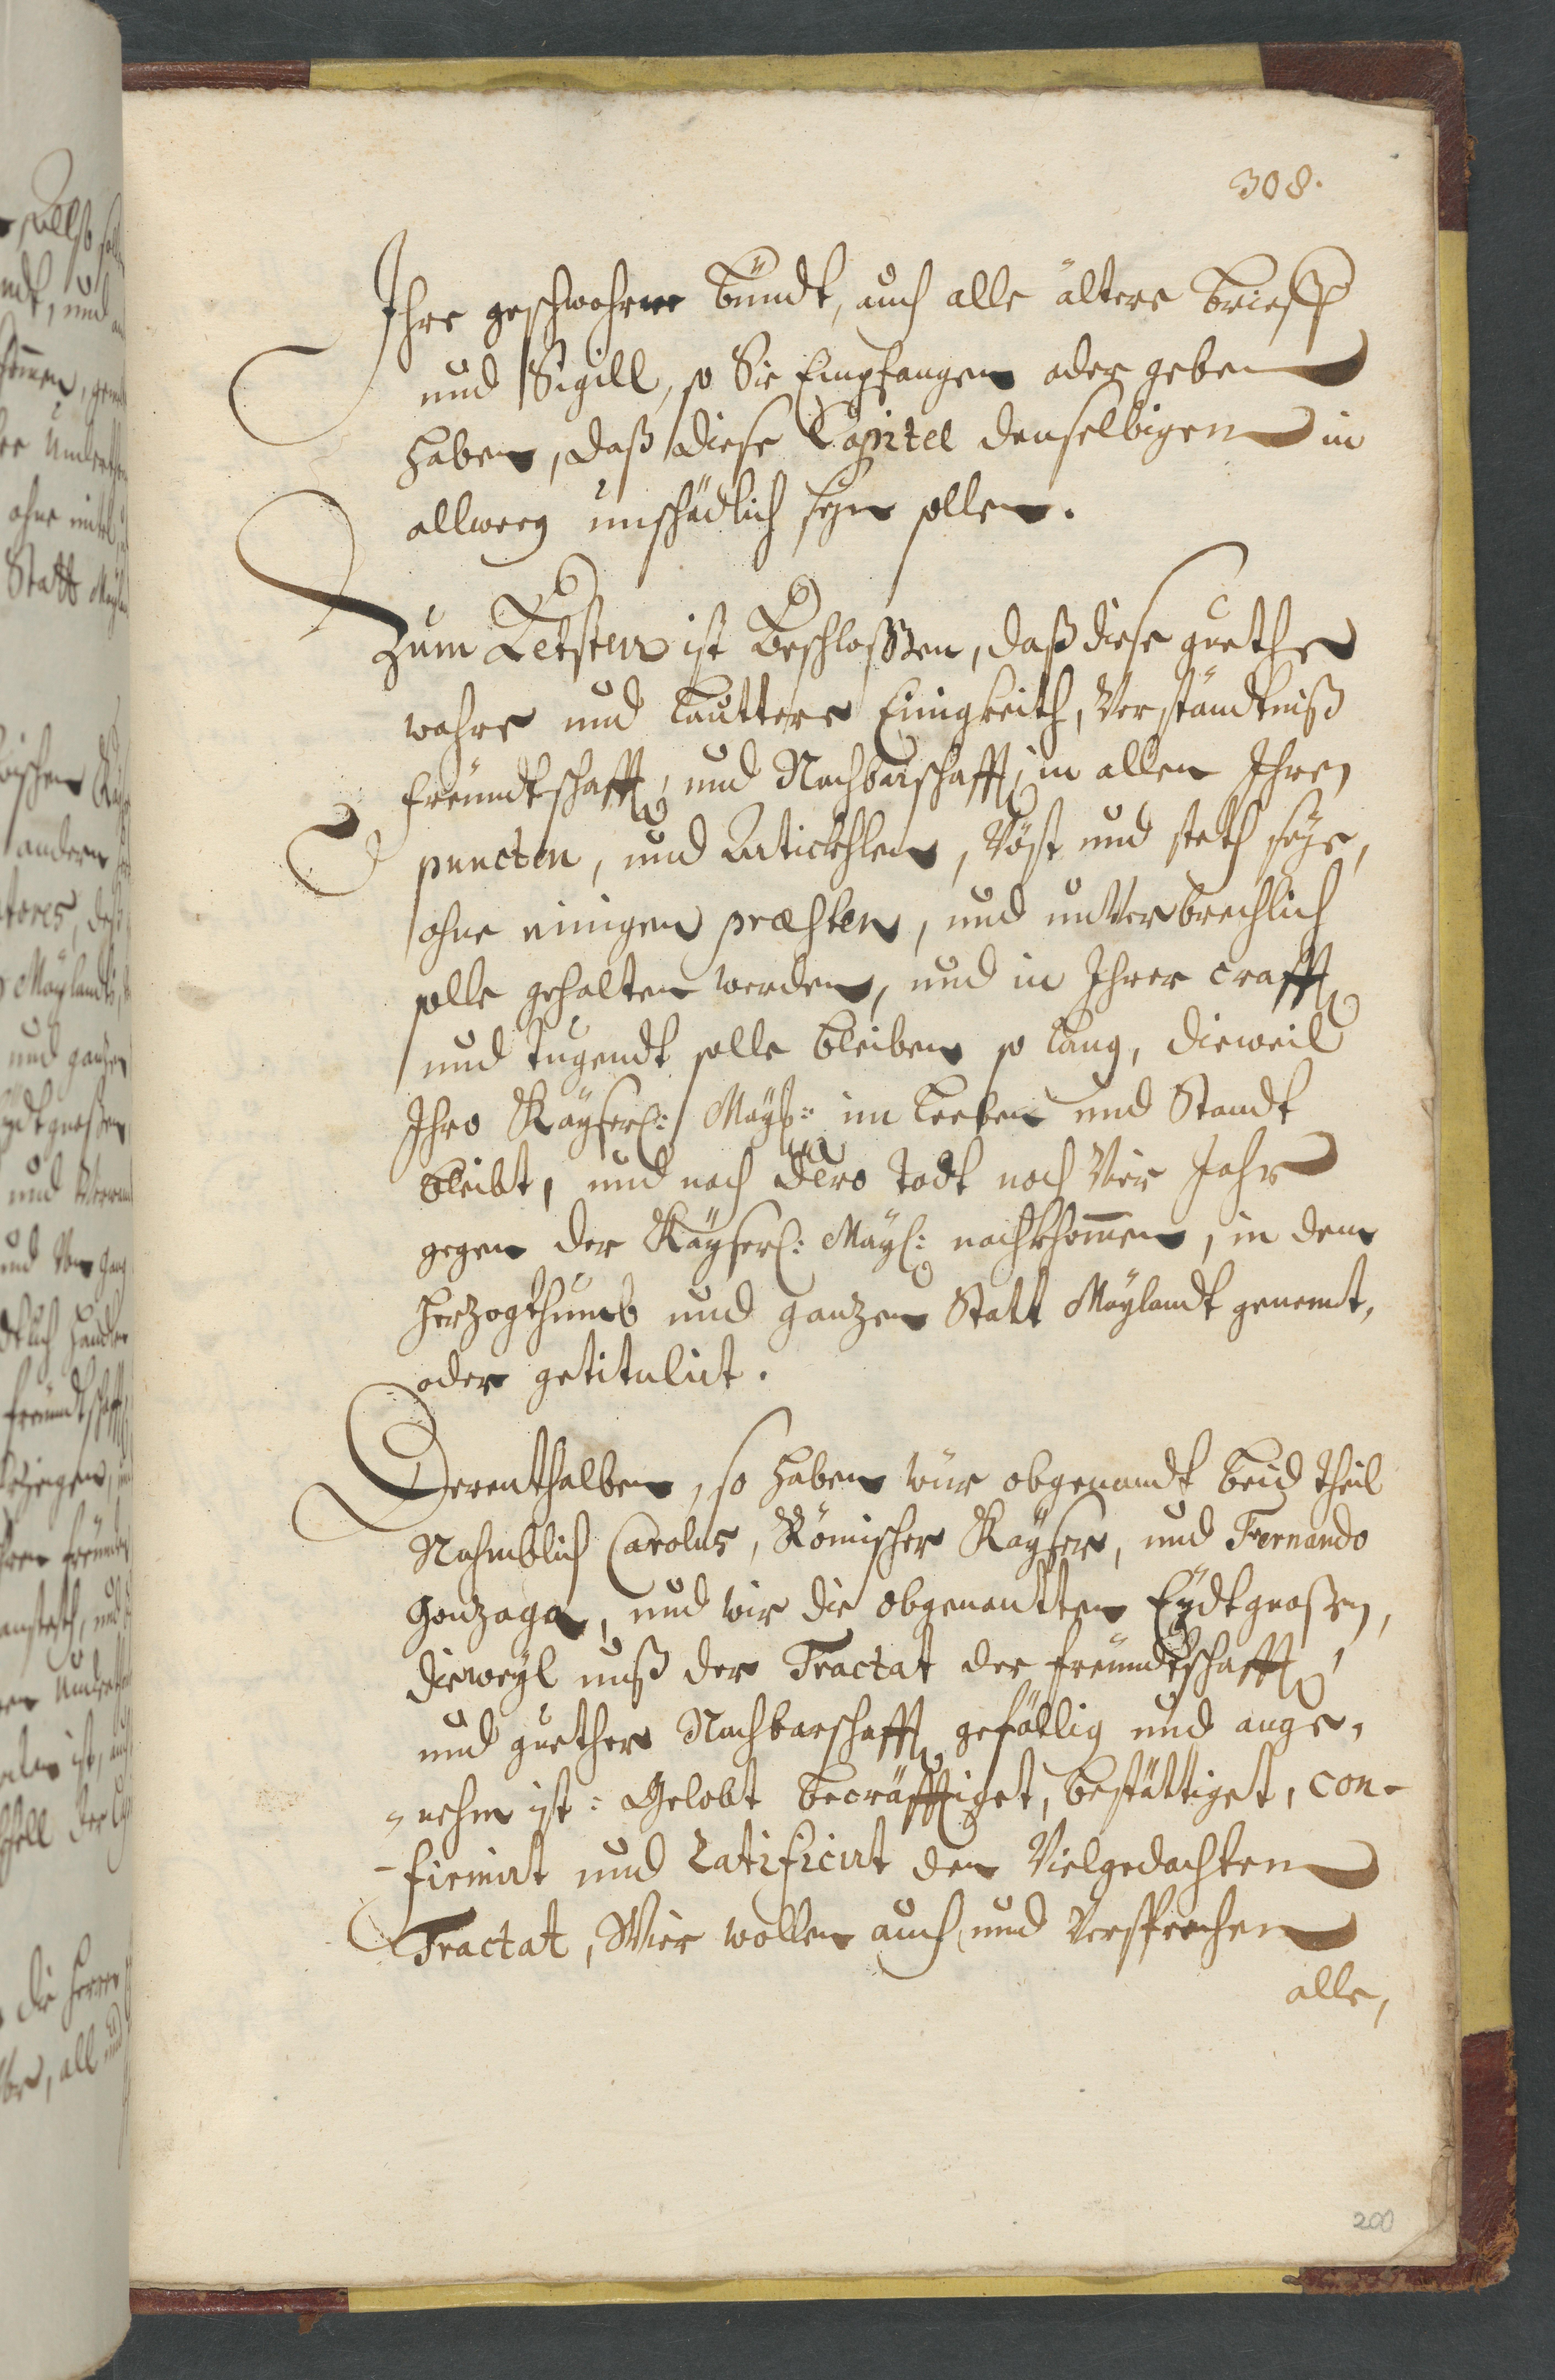 308.
Ihre geschwohrne bündt, auch alle ältere brieff
und Sigill, so Sie Empfangen oder geben
haben, daß diese Capitel denselbigen in
allweeg unschädlich seyn sollen.
Zum Letsten ist Beschlossen, daß diese guethe
wahre und lauttere Einigkeith, Verständtniß
freündtschafft, und Nachbarschafft, in allen Ihren
puncten, und Articklen, Vöst und steth seye,
ohne einigen præsten, und unVerbrechlich
solle gehalten werden, und in Ihrer crafft
und tugendt solle bleiben so lang, dieweil
Ihro Kayserl: Mayt: im leeben und Standt
bleibt, und nach dero todt noch Vier Jahr
gegen der Kayserl: May: nachkhommen, in dem
herzogthumb und ganzen Statt Maylandt genemt,
oder getitulirt.
Derenthalben, so haben wür obgenandt beid theil
Nahmblich Carolus, Römischer Kayser, und Fernando
Gonzaga, und wir die obgenantten Eydtgnoßen,
dieweyl unß der Tractat der freündtschafft,
und guether Nachbarschafft gefällig und ange-
nehm ist: Gelobt becräfftiget, bestättiget, con-
firmirt und Ratificirt den Vielgedachten
Tractat, Wier wollen auch und Versprechen
alle,
200